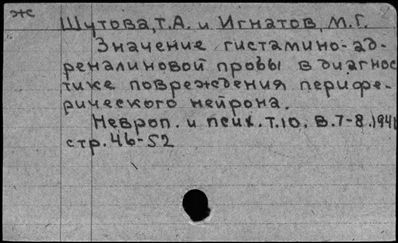 ж
Шутова, Т.А. и Игнатов, М.Г.
Значение гистамино-ад-
реналиновой пробы в диагнос
тике повреждения перифе-
рического нейрона.
Невроп. и псих. т.10. в.7-8.1941
стр.46-52